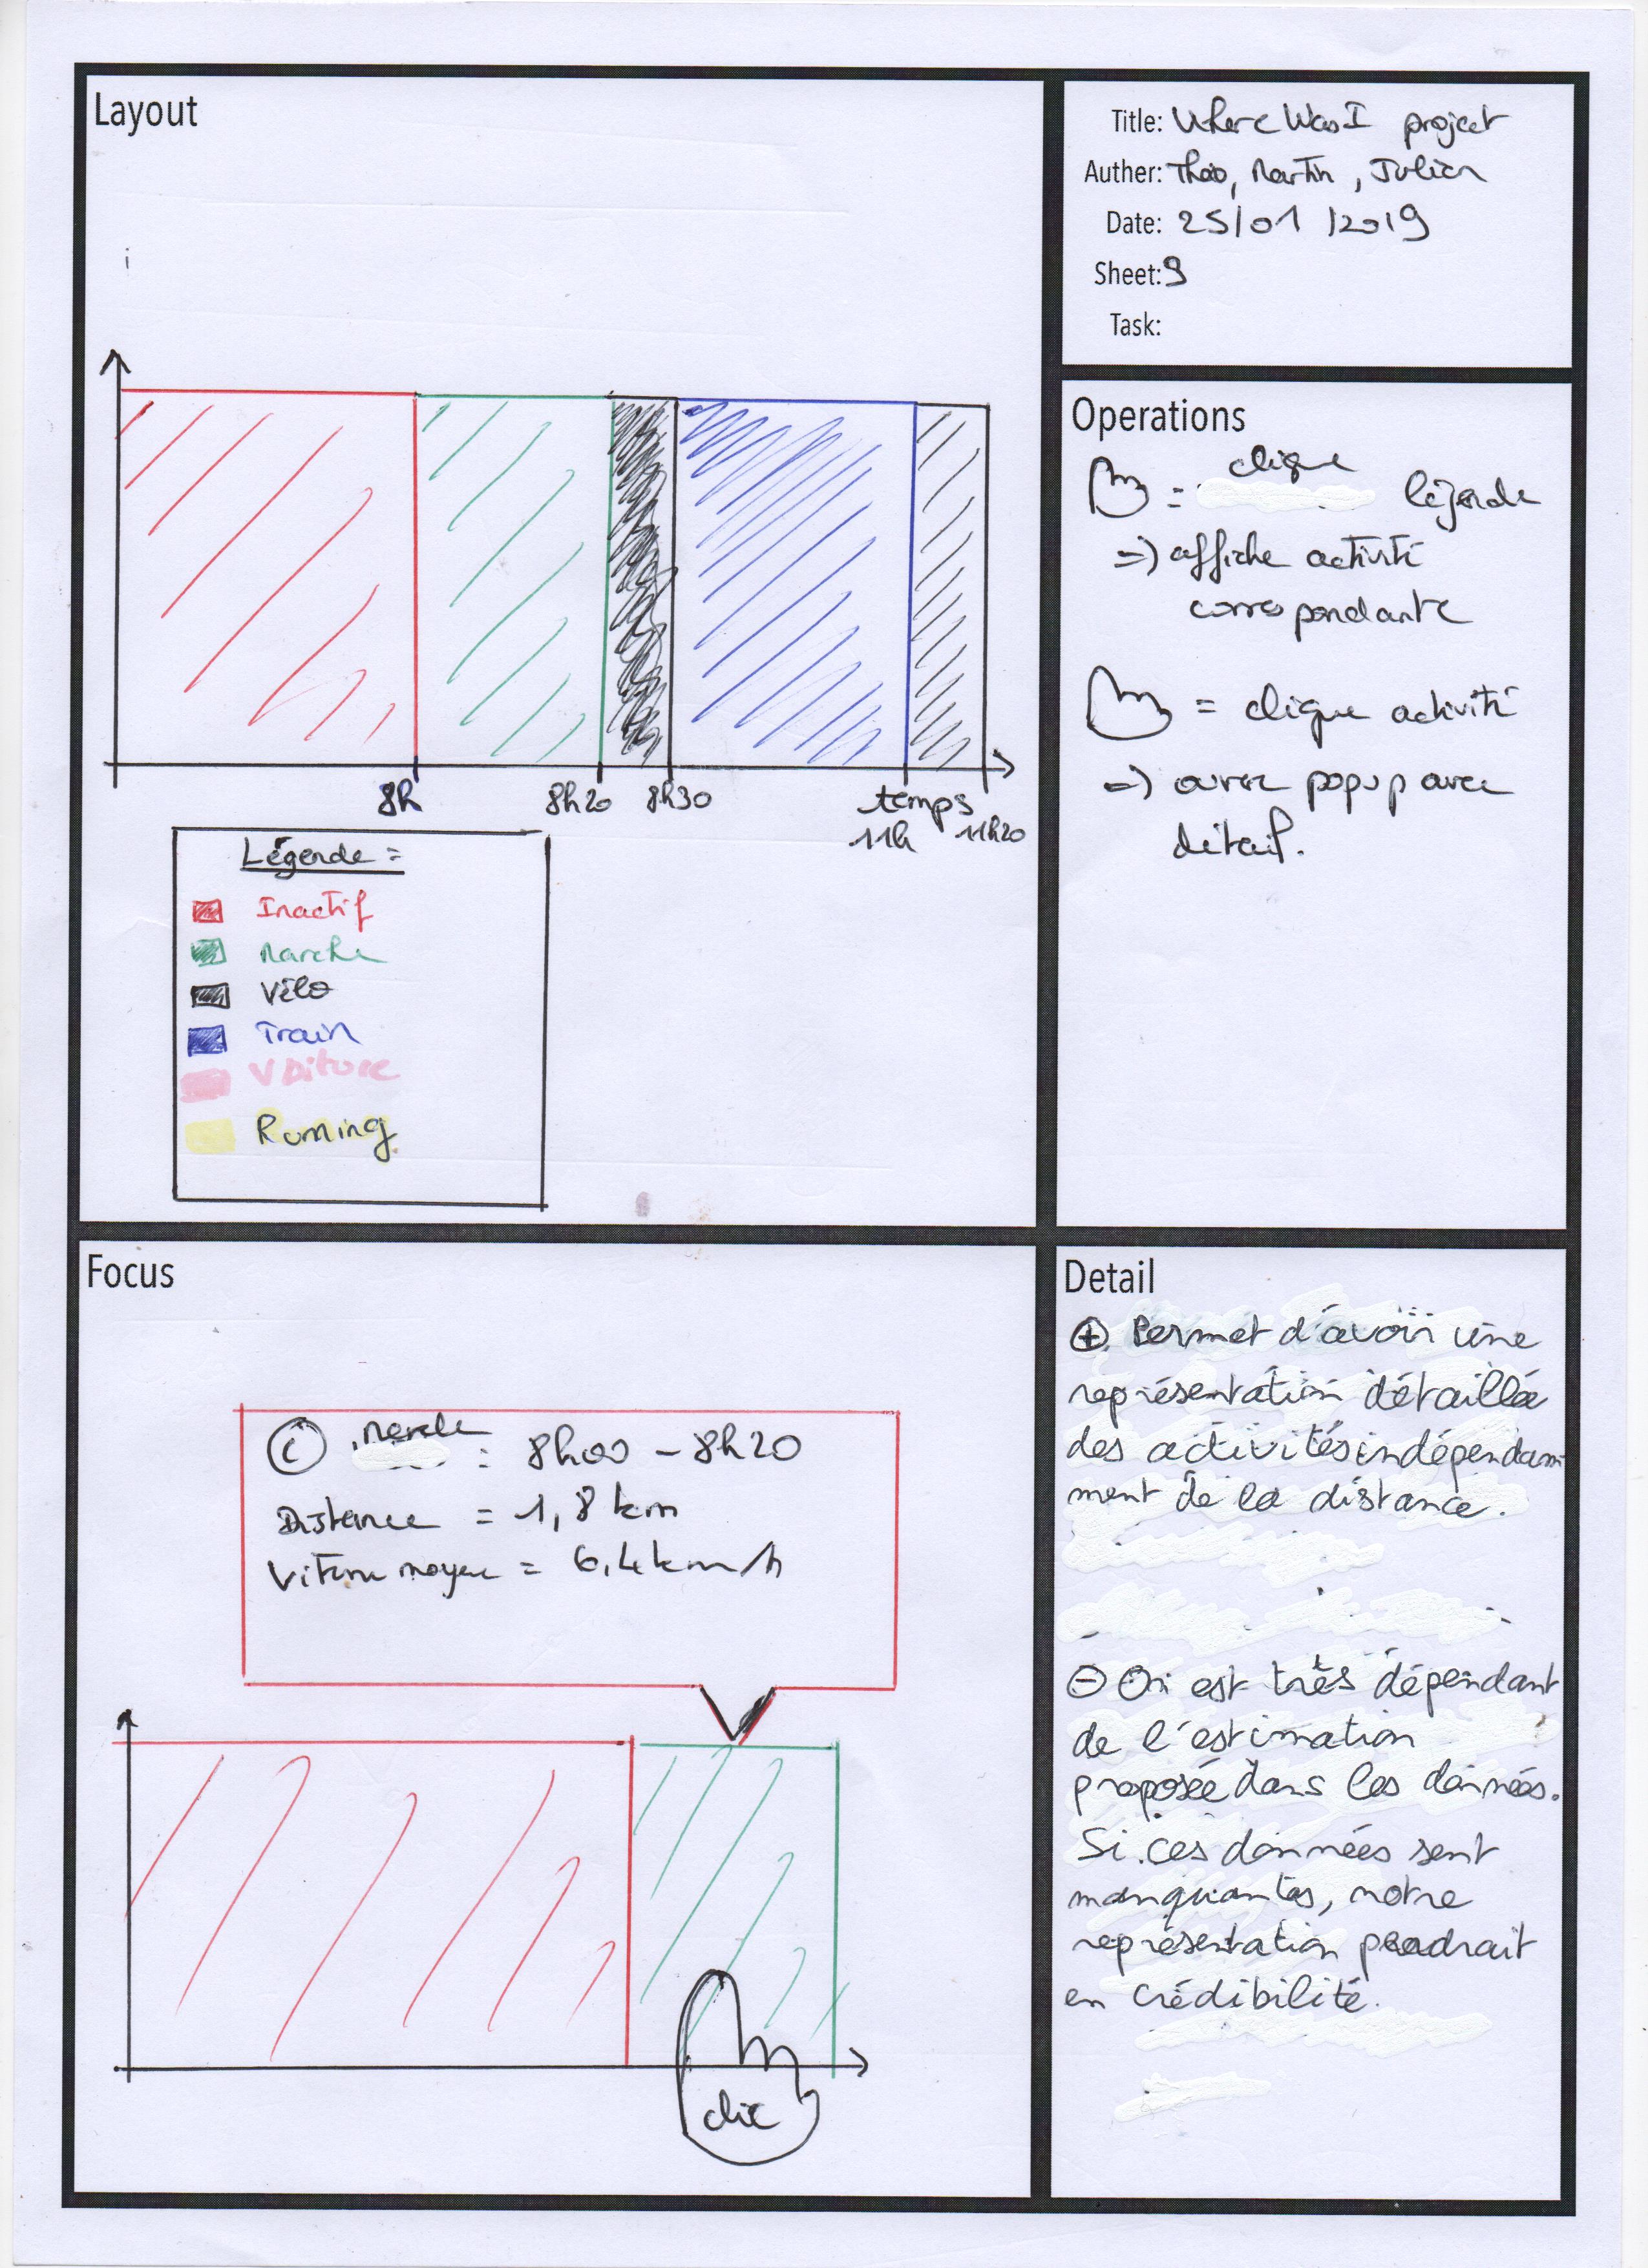 Layout
8h
8h20
8h30
temps
11h
11h20
Légende =
Inactif
Marche
Vélo
Train
Voiture
Running
Title: Where Was I project
Auther: Théo, Martin, Julien
Date: 25/01/2019
Sheet: 9
Task:
Operations
= clique légende
=> affiche activité
correspondante
= clique activité
=> ouvre popup avec
détail.
Focus
marche : 8h00 - 8h20
Distance = 1,8 km
Vitesse moyenne = 6,4 km/h
clic
Detail
+ Permet d'avoir une
représentation détaillée
des activités indépendam
ment de la distance.
- On est très dépendant
de l'estimation
proposée dans les données.
Si ces données sont
manquantes, notre
représentation perdrait
en crédibilité.